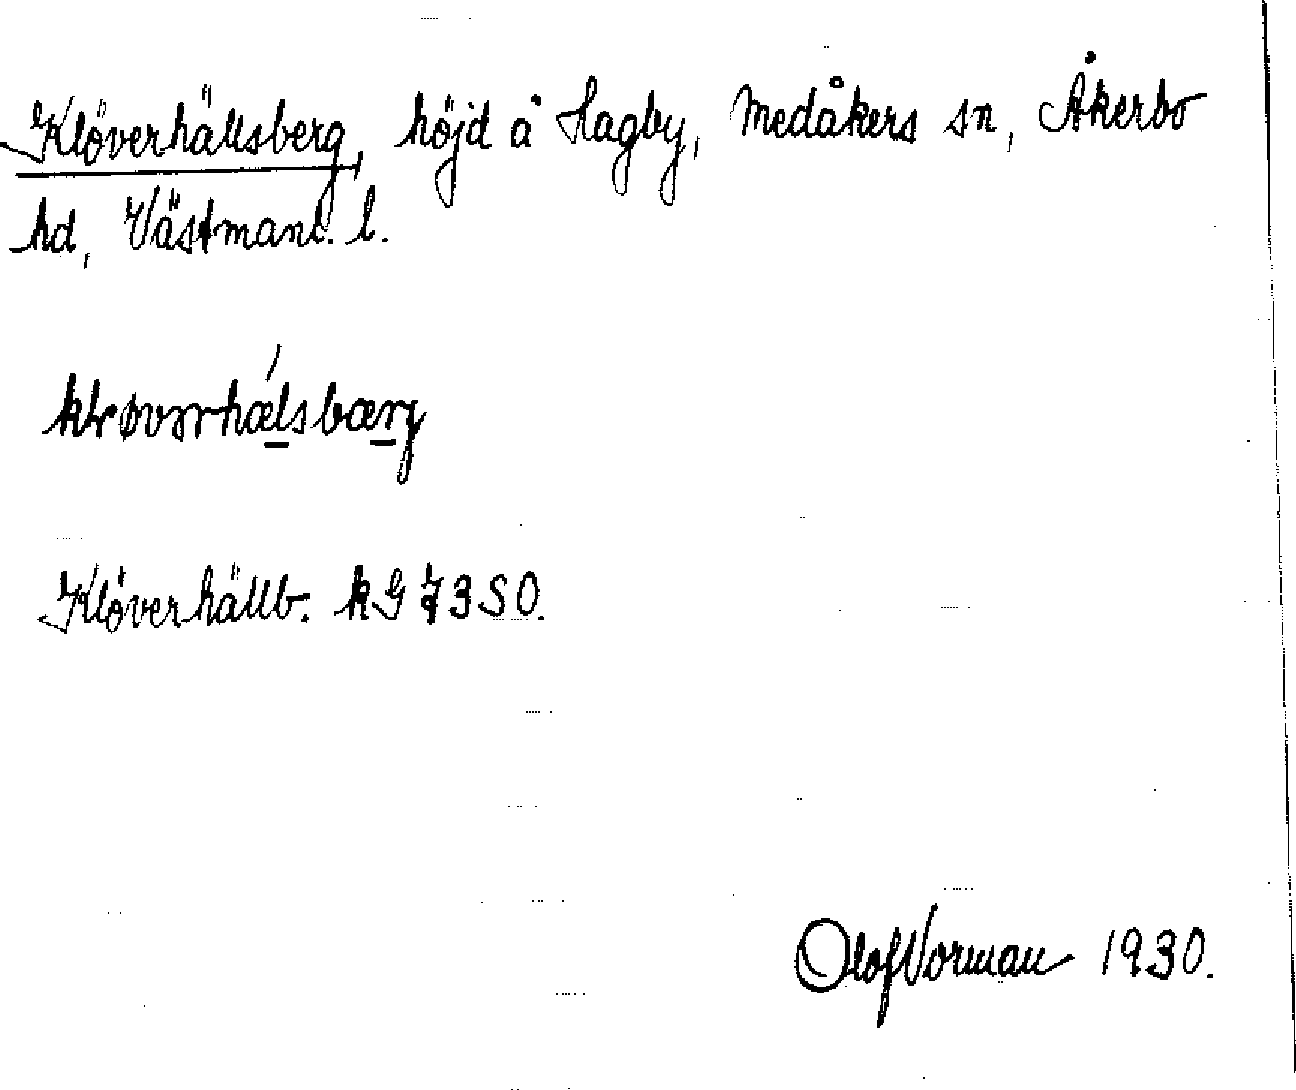 Klöverhällsberg, höjd å Hagby, Medåkers sn, Åkerbo
hd, Västmanl. l.
Klöverhällb. kG 73 SO.
Olof Norman 1930.